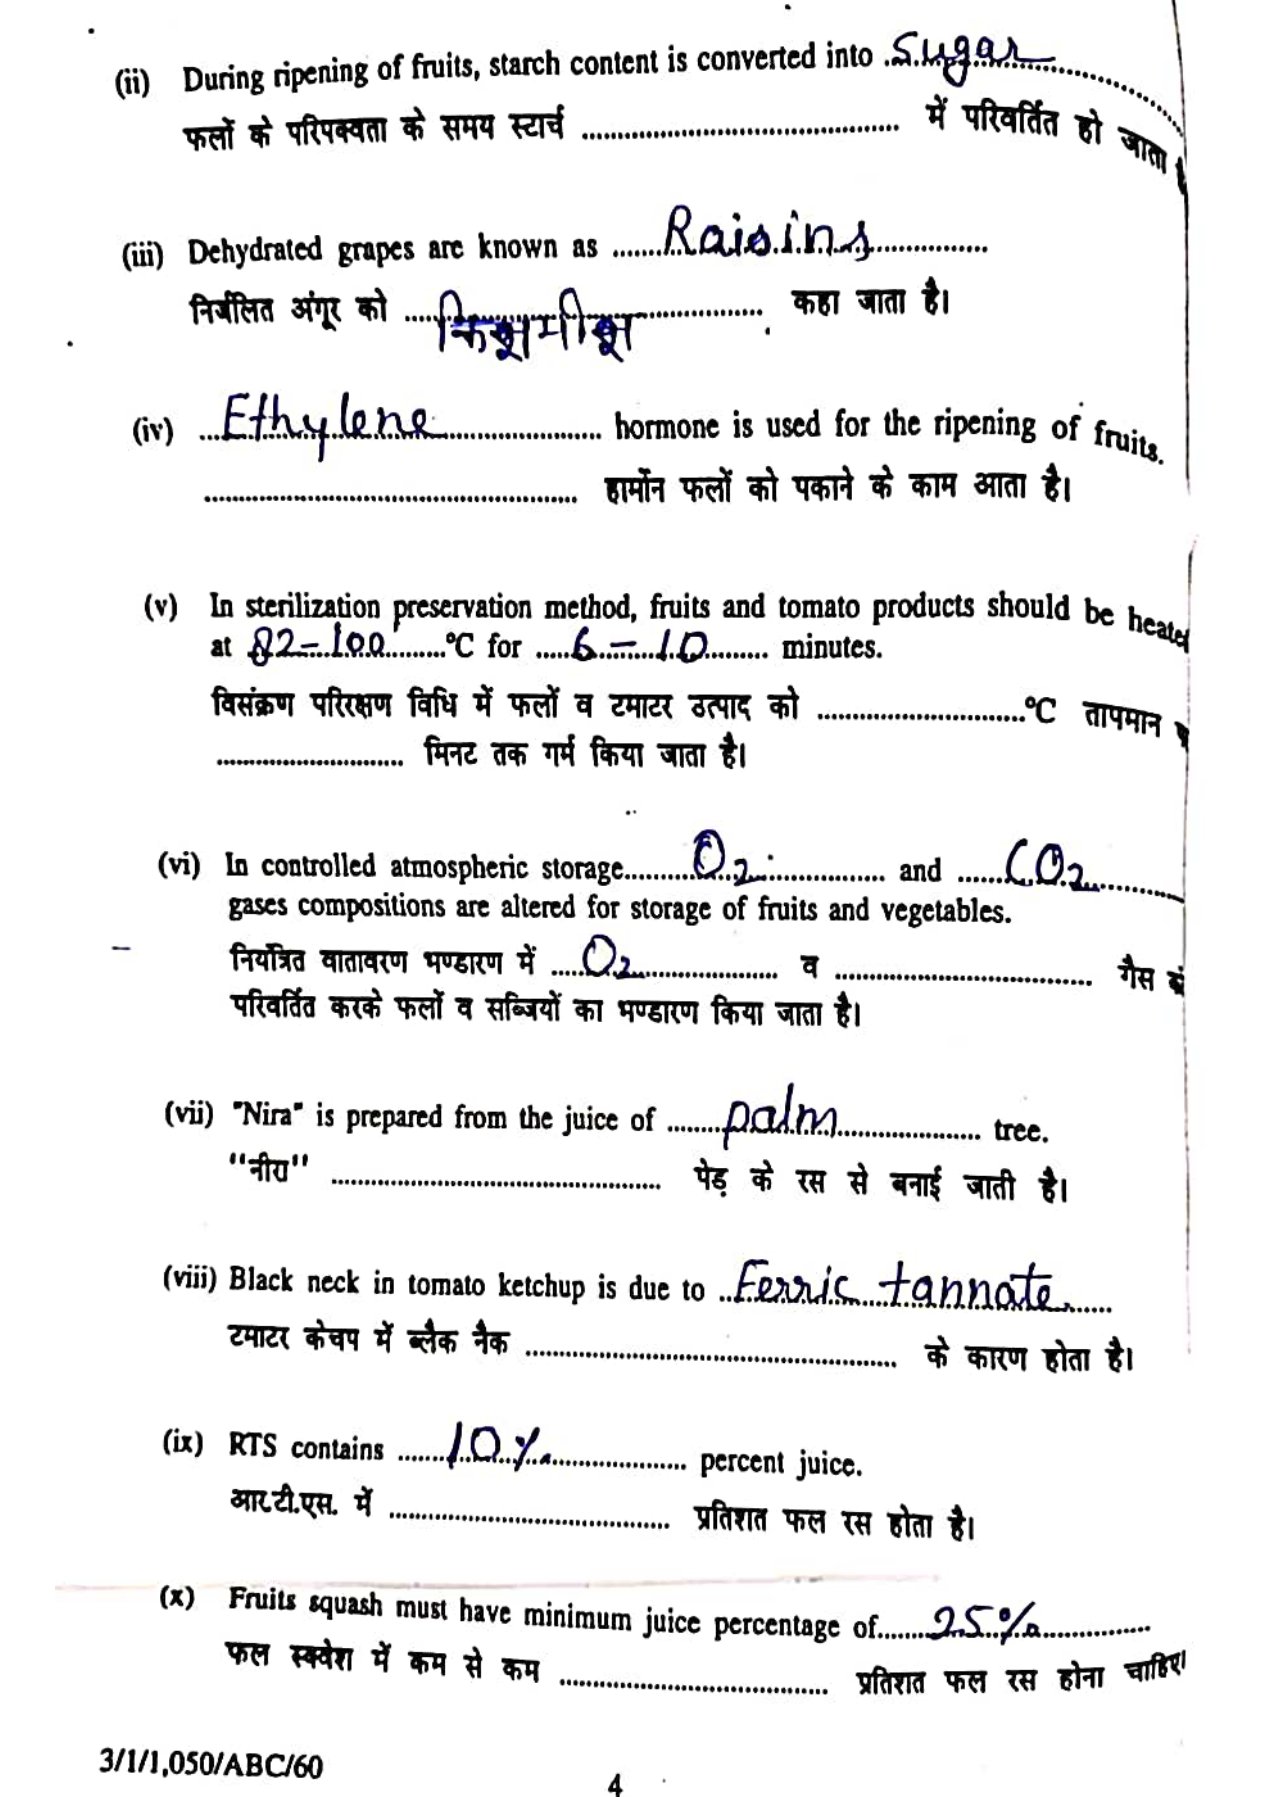 (ii) During ripening of fruits, starch content is converted into Sugar
फलों के परिपक्वता के समय स्टार्च .................... में परिवर्तित हो जाता
(iii) Dehydrated grapes are known as Raisins
निर्जलित अंगूर को किशमीश कहा जाता है।
(iv) Ethylene hormone is used for the ripening of fruits.
.................... हार्मोन फलों को पकाने के काम आता है।
(v) In sterilization preservation method, fruits and tomato products should be heated
at 82-100 °C for 6-10 minutes.
विसंक्रण परिरक्षण विधि में फलों व टमाटर उत्पाद को .................... °C तापमान
.................... मिनट तक गर्म किया जाता है।
(vi) In controlled atmospheric storage O2 and CO2
gases compositions are altered for storage of fruits and vegetables.
नियंत्रित वातावरण भण्डारण में O2 व .................... गैस
परिवर्तित करके फलों व सब्जियों का भण्डारण किया जाता है।
(vii) "Nira" is prepared from the juice of palm tree.
"नीरा" .................... पेड़ के रस से बनाई जाती है।
(viii) Black neck in tomato ketchup is due to Ferric tannate
टमाटर केचप में ब्लैक नैक .................... के कारण होता है।
(ix) RTS contains 10% percent juice.
आर.टी.एस. में .................... प्रतिशत फल रस होता है।
(x) Fruits squash must have minimum juice percentage of 25%
फल स्क्वेश में कम से कम .................... प्रतिशत फल रस होना चाहिए।
3/1/1,050/ABC/60
4